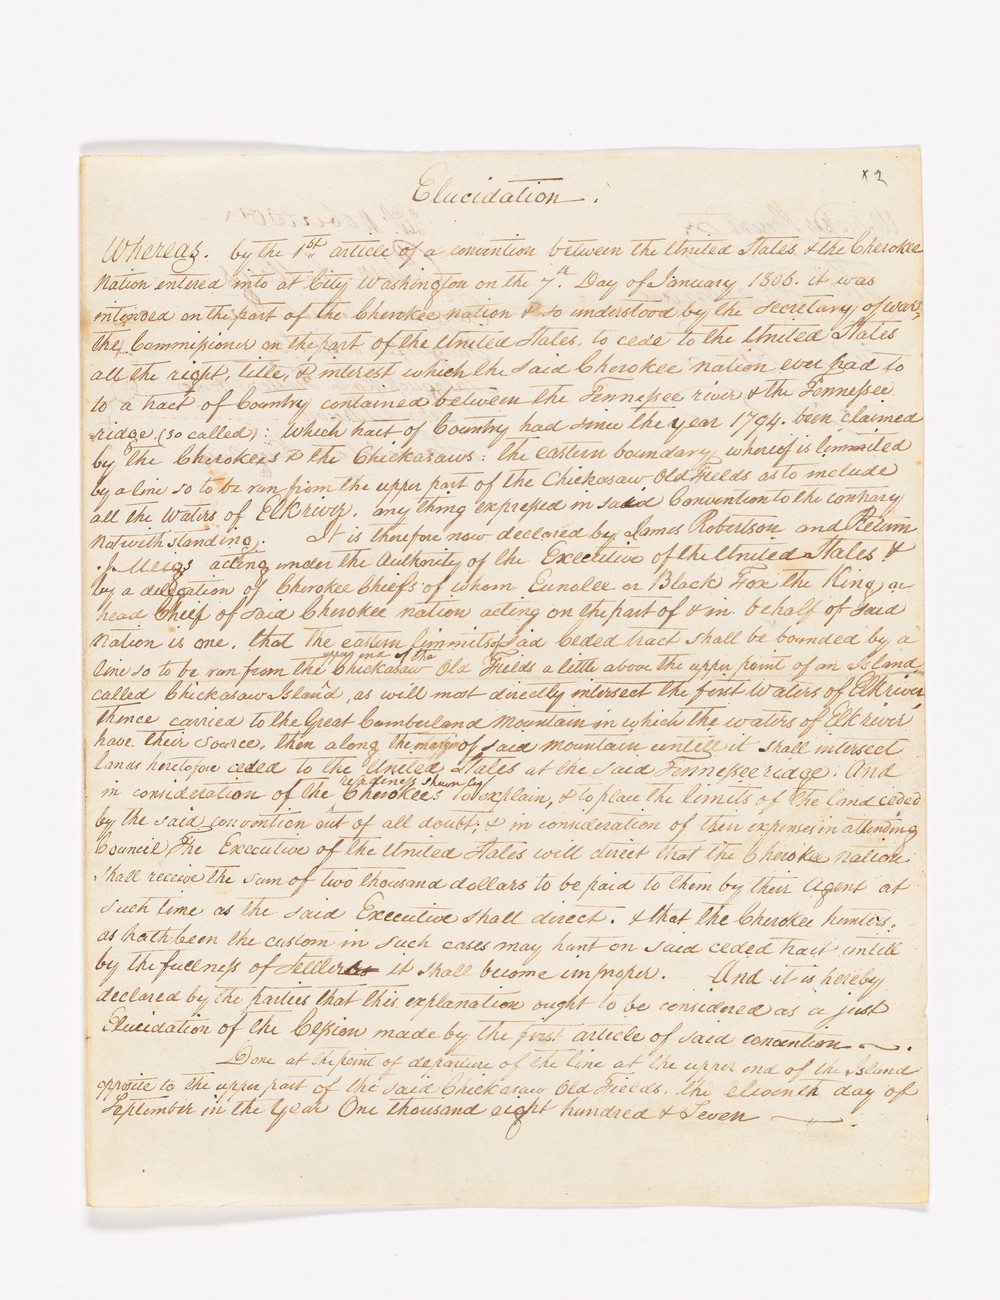 x 2
Elucidation.
Whereas. by the 1st article of a convention between the United States & the Cherokee
Nation entered into at City Washington on the 7th. Day of January 1806. it was
intended on the part of the Cherokee nation & so understood by the Secretary of war,
the Commissioner on the part of the United States. to cede to the United States
all the right, title, & interest which the said Cherokee nation ever had to
to a tract of Country contained between the Tennessee river & the Tennessee
ridge (so called): which tract of Country had since the year 1794. been claimed
by the Cherokees & the Chickasaws: the eastern boundary whereof is limmited
by a line so to be run from the upper part of the Chickasaw Old Fields as to include
all the waters of Elk river. any thing expressed in said Convention to the contrary
notwithstanding. It is therefore now declared by James Robertson and Return
J. Meigs acting under the Authority of the Executive of the United States &
by a delegation of Cherokee Chiefs of whom Eunolee or Black Fox the King or
head Chief of said Cherokee nation acting on the part of & in behalf of said
nation is one, that the eastern limmits of said Ceded tract shall be bounded by a
line so to be run from the upper end of the Chickasaw Old Fields a little above the upper point of an Island
called Chickasaw Island, as will most directly intersect the first waters of Elk river,
thence carried to the Great Cumberland Mountain in which the waters of Elk river
have their source, then along the margin of said mountain untill it shall intersect
lands heretofore ceded to the United States at the said Tennessee ridge. And
in consideration of the readiness shewn by Cherokees to explain, & to place the limits of the land ceded
by the said convention out of all doubt; & in consideration of their expenses in attending
Council, The Executive of the United States will direct that the Cherokee nation
shall receive the sum of two thousand dollars to be paid to them by their Agent at
such time as the said Executive shall direct. & that the Cherokee hunters,
as hath been the custom in such cases may hunt on said ceded tract, untill
by the fullness of settlers it shall become improper. And it is hereby
declared by the parties that this explanation ought to be considered as a just
Elucidation of the Cession made by the first article of said convention.
Done at the point of departure of the line at the upper end of the Island
opposite to the upper part of the said Chickasaw Old Fields. the eleventh day of
September in the Year One thousand eight hundred & Seven.